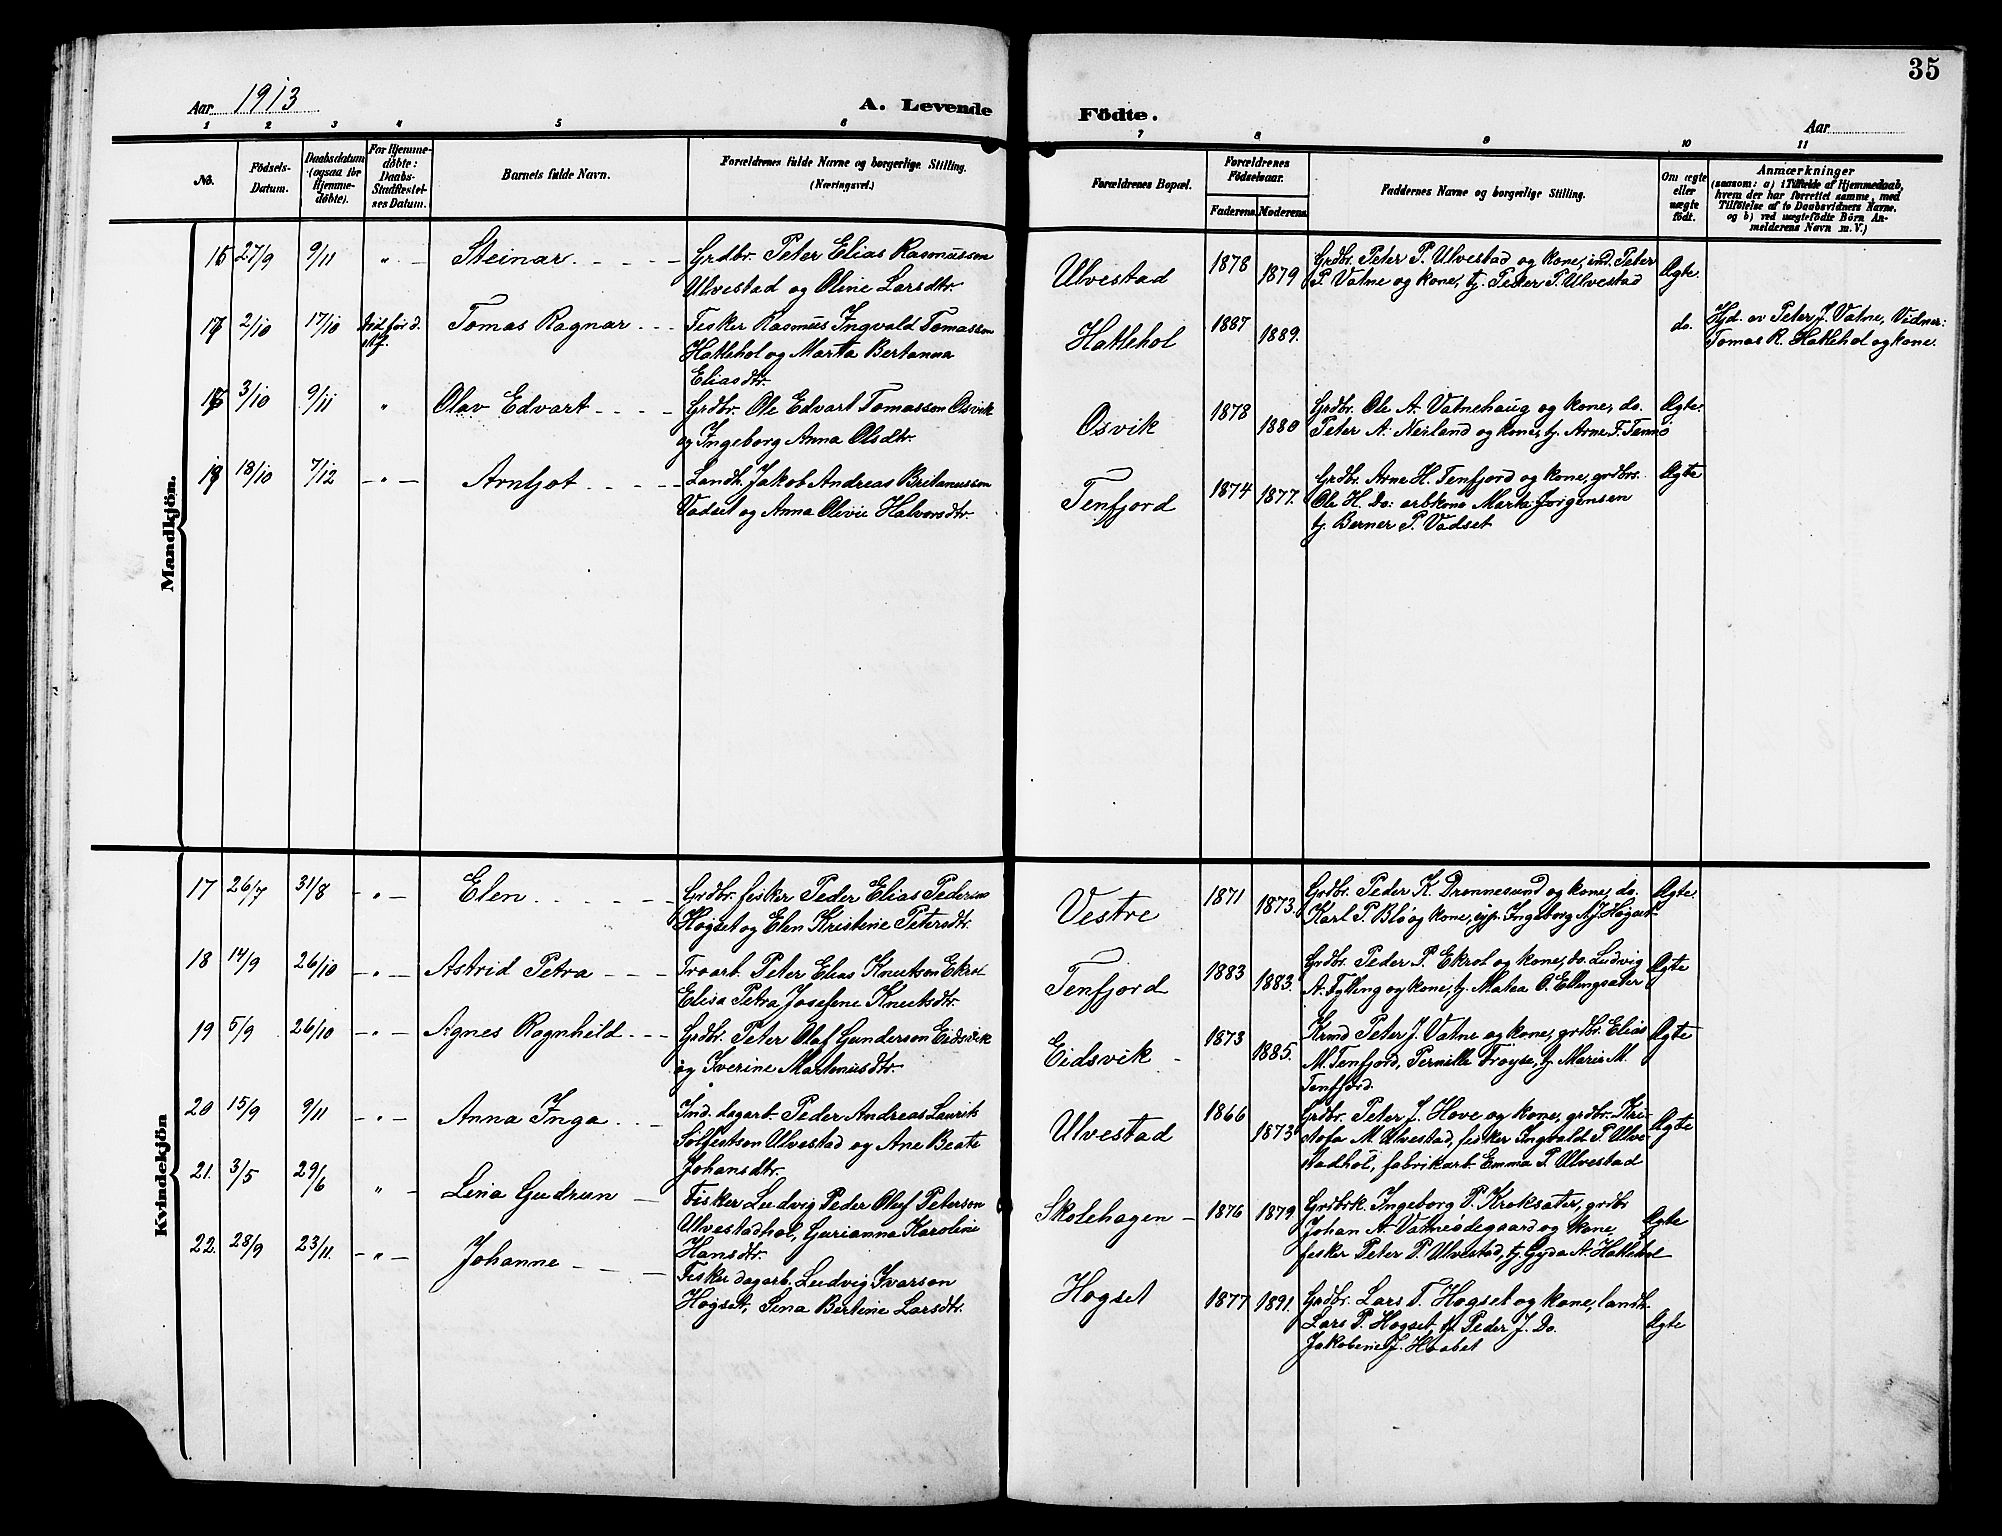 35
Aar 1913
A. Levende Födte.
Aar
1 2 3 4 5 6 7 8 9 10 11
No.
Födsels-
Datum.
Daabsdatum
(ogsaa for
Hjemme-
döbte).
For Hjemme-
döbte:
Daabs-
Stadfæstel-
ses Datum.
Barnets fulde Navn.
Forældrenes fulde Navne og borgerlige Stilling.
(Næringsvei.)
Forældrenes Bopæl.
Forældrenes
Födselsaar.
Faderens. Moderens.
Faddernes Navne og borgerlige Stilling.
Om ægte
eller
uægte
födt.
Anmærkninger
(saasom: a) i Tilfælde af Hjemmedaab,
hvem der har forrettet samme, med
Tilföielse af to Daabsvidners Navne,
og b) ved uægtefödte Börn An-
melderens Navn m. V.)
Mandkjön.
27/9 9/11 " - Steinar
Grdbr. Peter Elias Rasmussen
Ulvestad og Oline Larsdtr.
Ulvestad 1878 1879
Grdbr. Peter P. Ulvestad og kone, ind. Peter
P. Vatne og kone, tj. Peder P. Ulvestad
Ægte.
17 2/10 17/10 Tomas Ragnar
Fisker Rasmus Ingvald Tomassen
Hatlehol og Marta Bertanna
Eliasdtr.
Hatlehol 1887 1889.
do.
Hjd. av Peter J. Vatne, Vidner:
Tomas R. Hatlehol og kone.
3/10 9/11 " Olav Edvart
Grdbr. Ole Edvart Tomassen Osvik
og Ingeborg Anna Olsdtr.
Osvik 1878 1880
Grdbr. Ole A. Vatnehaug og kone, do.
Peter A. Nerland og kone, tj. Arne F. Tennø
Ægte.
19 18/10 7/12 - " - Arnljot
Landh. Jakob Andreas Britanussen
Vadset og Anna Olivie Halvorsdtr.
Tenfjord 1874 1877.
Grdbr. Arne H. Tenfjord og kone, grdbrs.
Ole H. Do. arbkone Marta Jørgensen
tj. Berner P. Vadset
Ægte
Kvindekjön
17 26/7 31/8 - " - Elen
Grdbr. fisker Peder Elias Pedersen
Hogset og Elen Kristene Petersdtr.
Vestre 1871 1873.
Grdbr. Peder K. Drønnesund og kone, do.
Karl P. Blø og kone, syp. Ingeborg A. J. Hogset
Ægte.
18 14/9 26/10 - " - Astrid Petra
Troarb. Peter Elias Knutsen Ekrol
Elisa Petra Josefine Knutsdtr.
Tenfjord 1883 1883.
Grdbr. Peder P. Ekrol og kone, do. Ludvig
A. Fylling og kone, tj. Matea O. Ellingsæter
Ægte
19 5/9 26/10 - " - Agnes Ragnhild
Grdbr. Peter Olaf Gunderson Eidsvik
og Iverine Martinusdtr.
Eidsvik - 1873 1885.
Krmd Peter J. Vatne og kone, grdbr. Elias
M. Tenfjord, Pernille Frøyse, tj. Marie M.
Tenfjord.
Ægte
20 15/9 9/11 - " - Anna Inga
Ind. dagarb. Peder Andreas Laurits
Solfestsen Ulvestad og Ane Beate
Johansdtr.
Ulvestad 1866 1873
Grdbr. Peter J. Hove og kone, grdbr. Kri-
stofa M. Ulvestad, fisker Ingvald P. Ulve-
stadhol, fabrikarb. Emma P. Ulvestad
Ægte
21. 3/5 29/6 " - Lina Gudrun
Fisker Ludvig Peder Oluf Peterson
Ulvestadhol, Gurianna Karoline
Hansdtr.
Skolehagen - 1876 1879
Grdbrk. Ingeborg P. Kroksæter, grdbr
Johan A. Vatneødegaard og kone,
fisker Peter P. Ulvestad, tj. Gyda A. Hatlehol
Ægte
22. 28/9 23/11. - " - Johanne
Fisker dagarb. Ludvig Ivarson
Hogset, Sina Bertine Larsdtr.
Hogset 1877 1891.
Grdbr. Lars T. Hogset og kone, landh.
Lars P. Hogset, tj. Peder J. Do.
Jakobine J. Haabet
Ægte